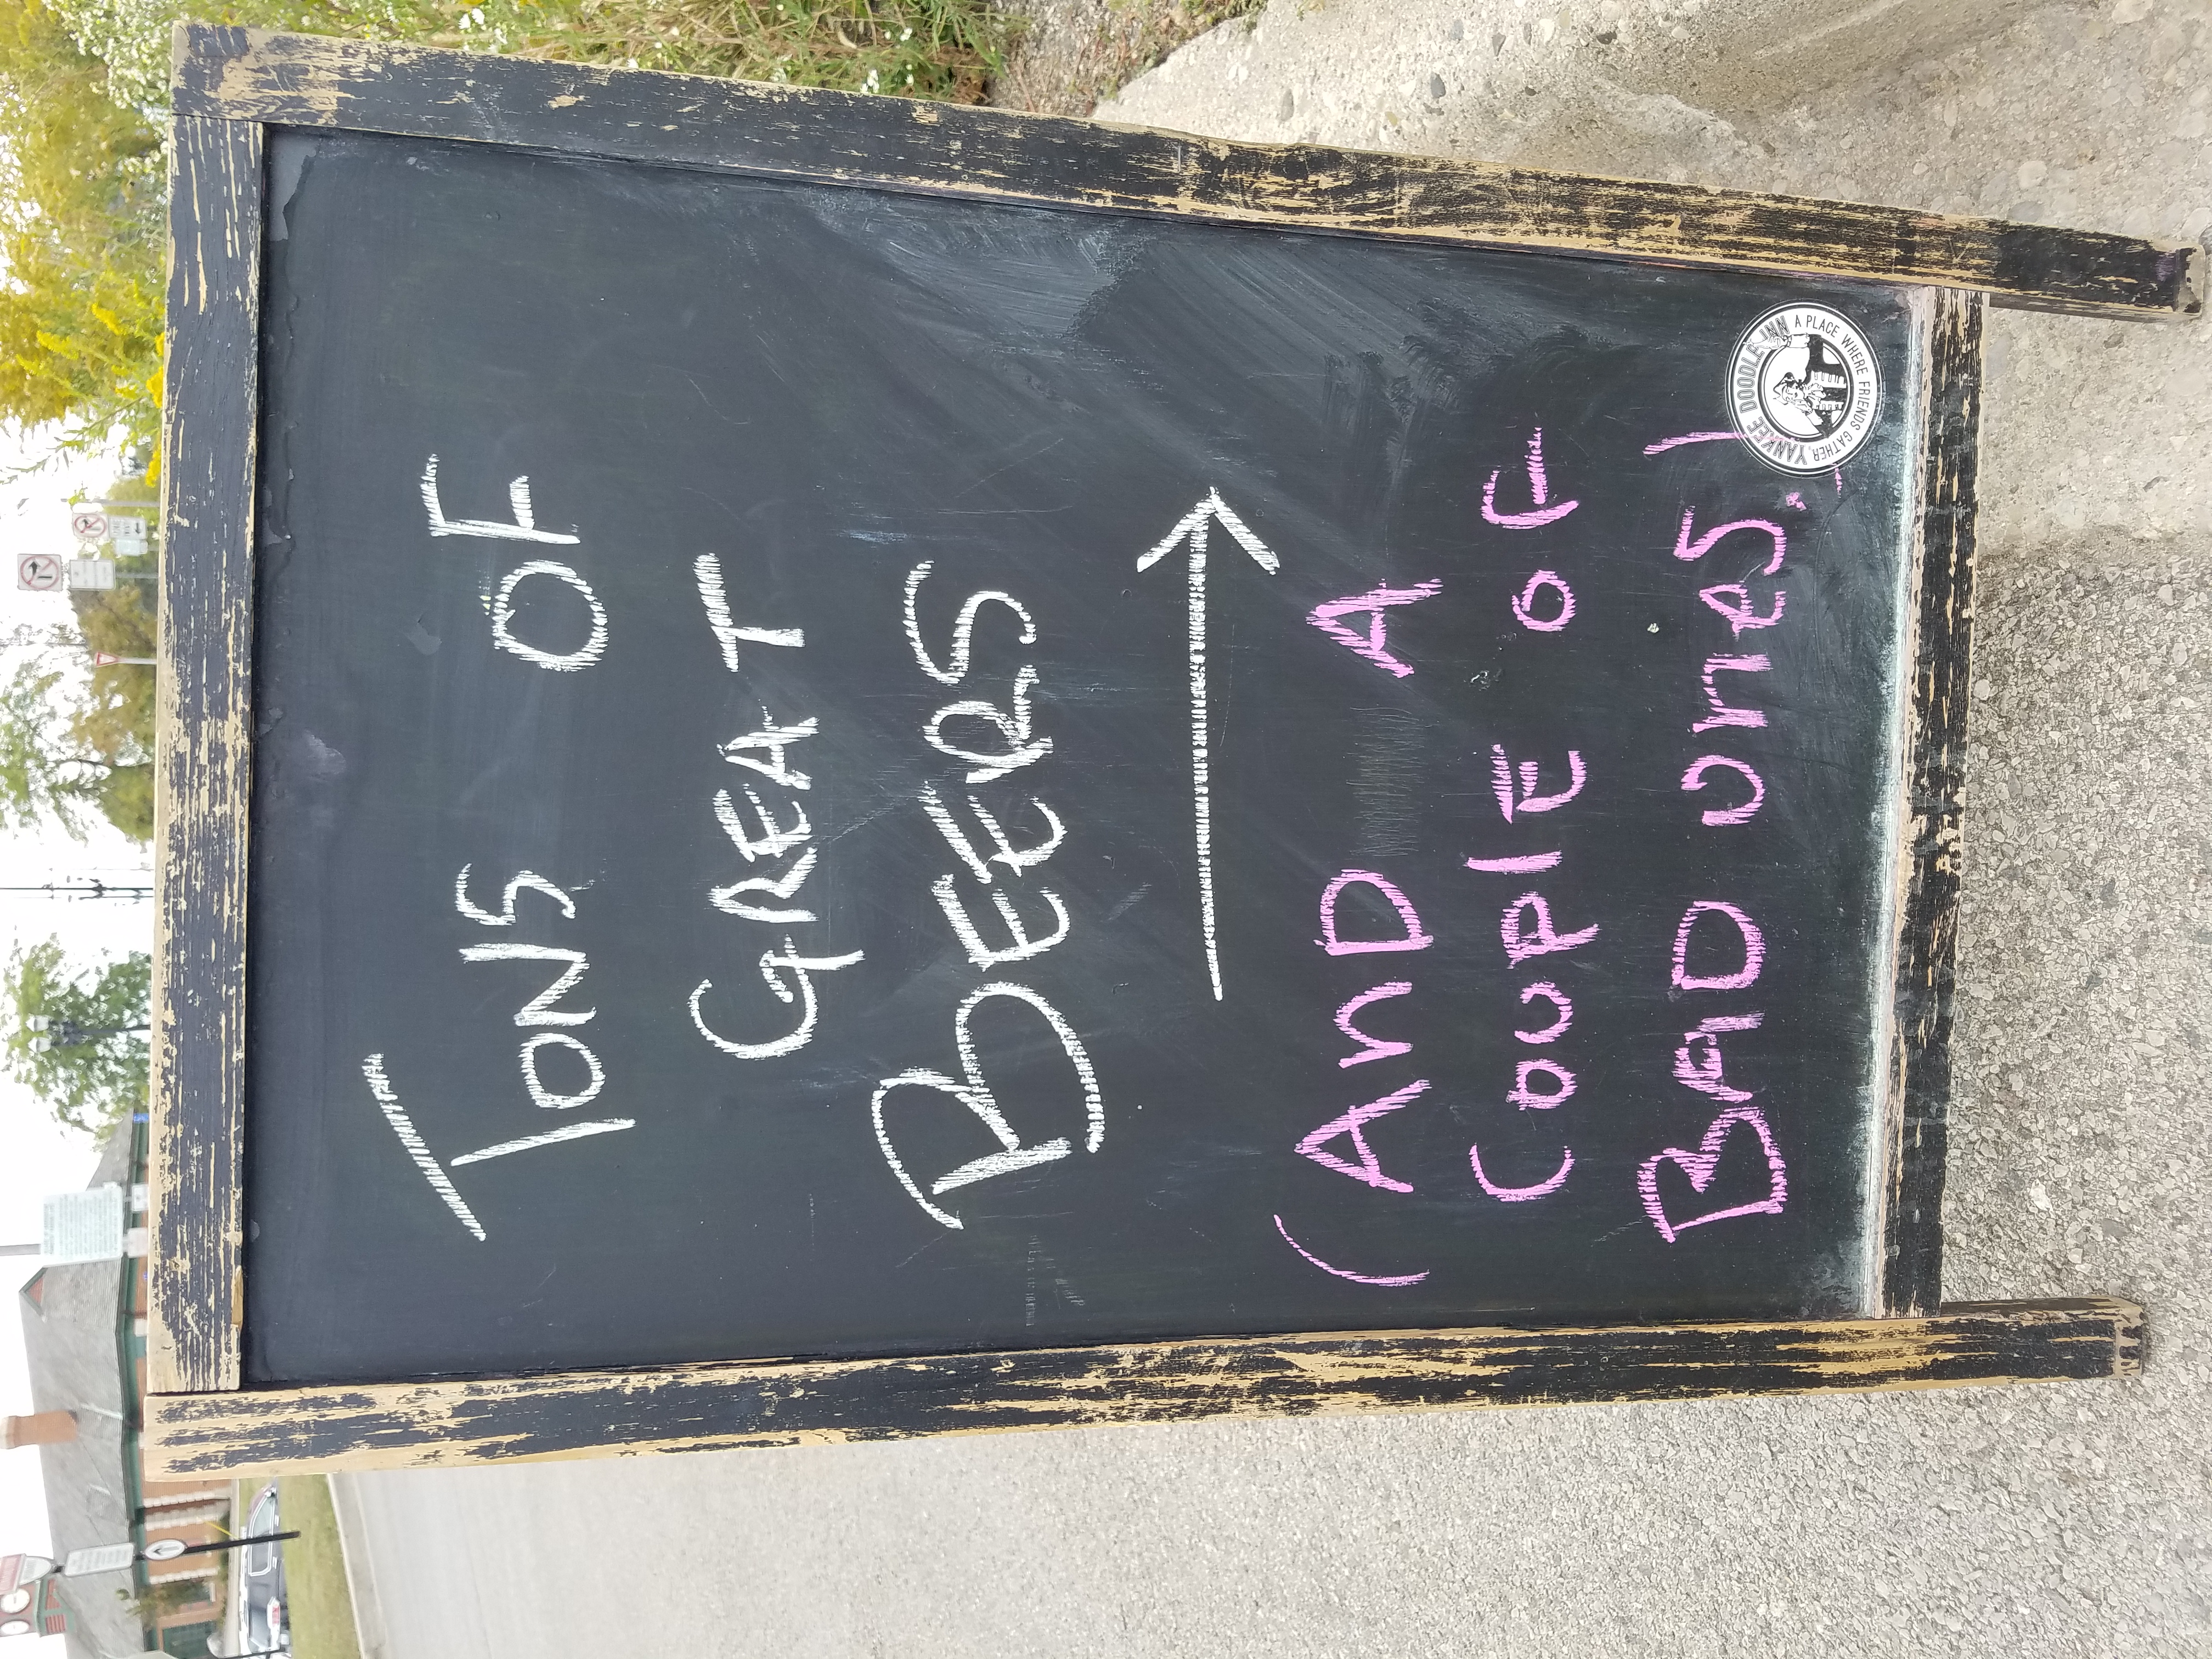 TONS OF
GREAT
BEERS
(AND A
COUPLE OF
BAD ONES.)
YANKEE DOODLE INN
A PLACE WHERE FRIENDS GATHER,